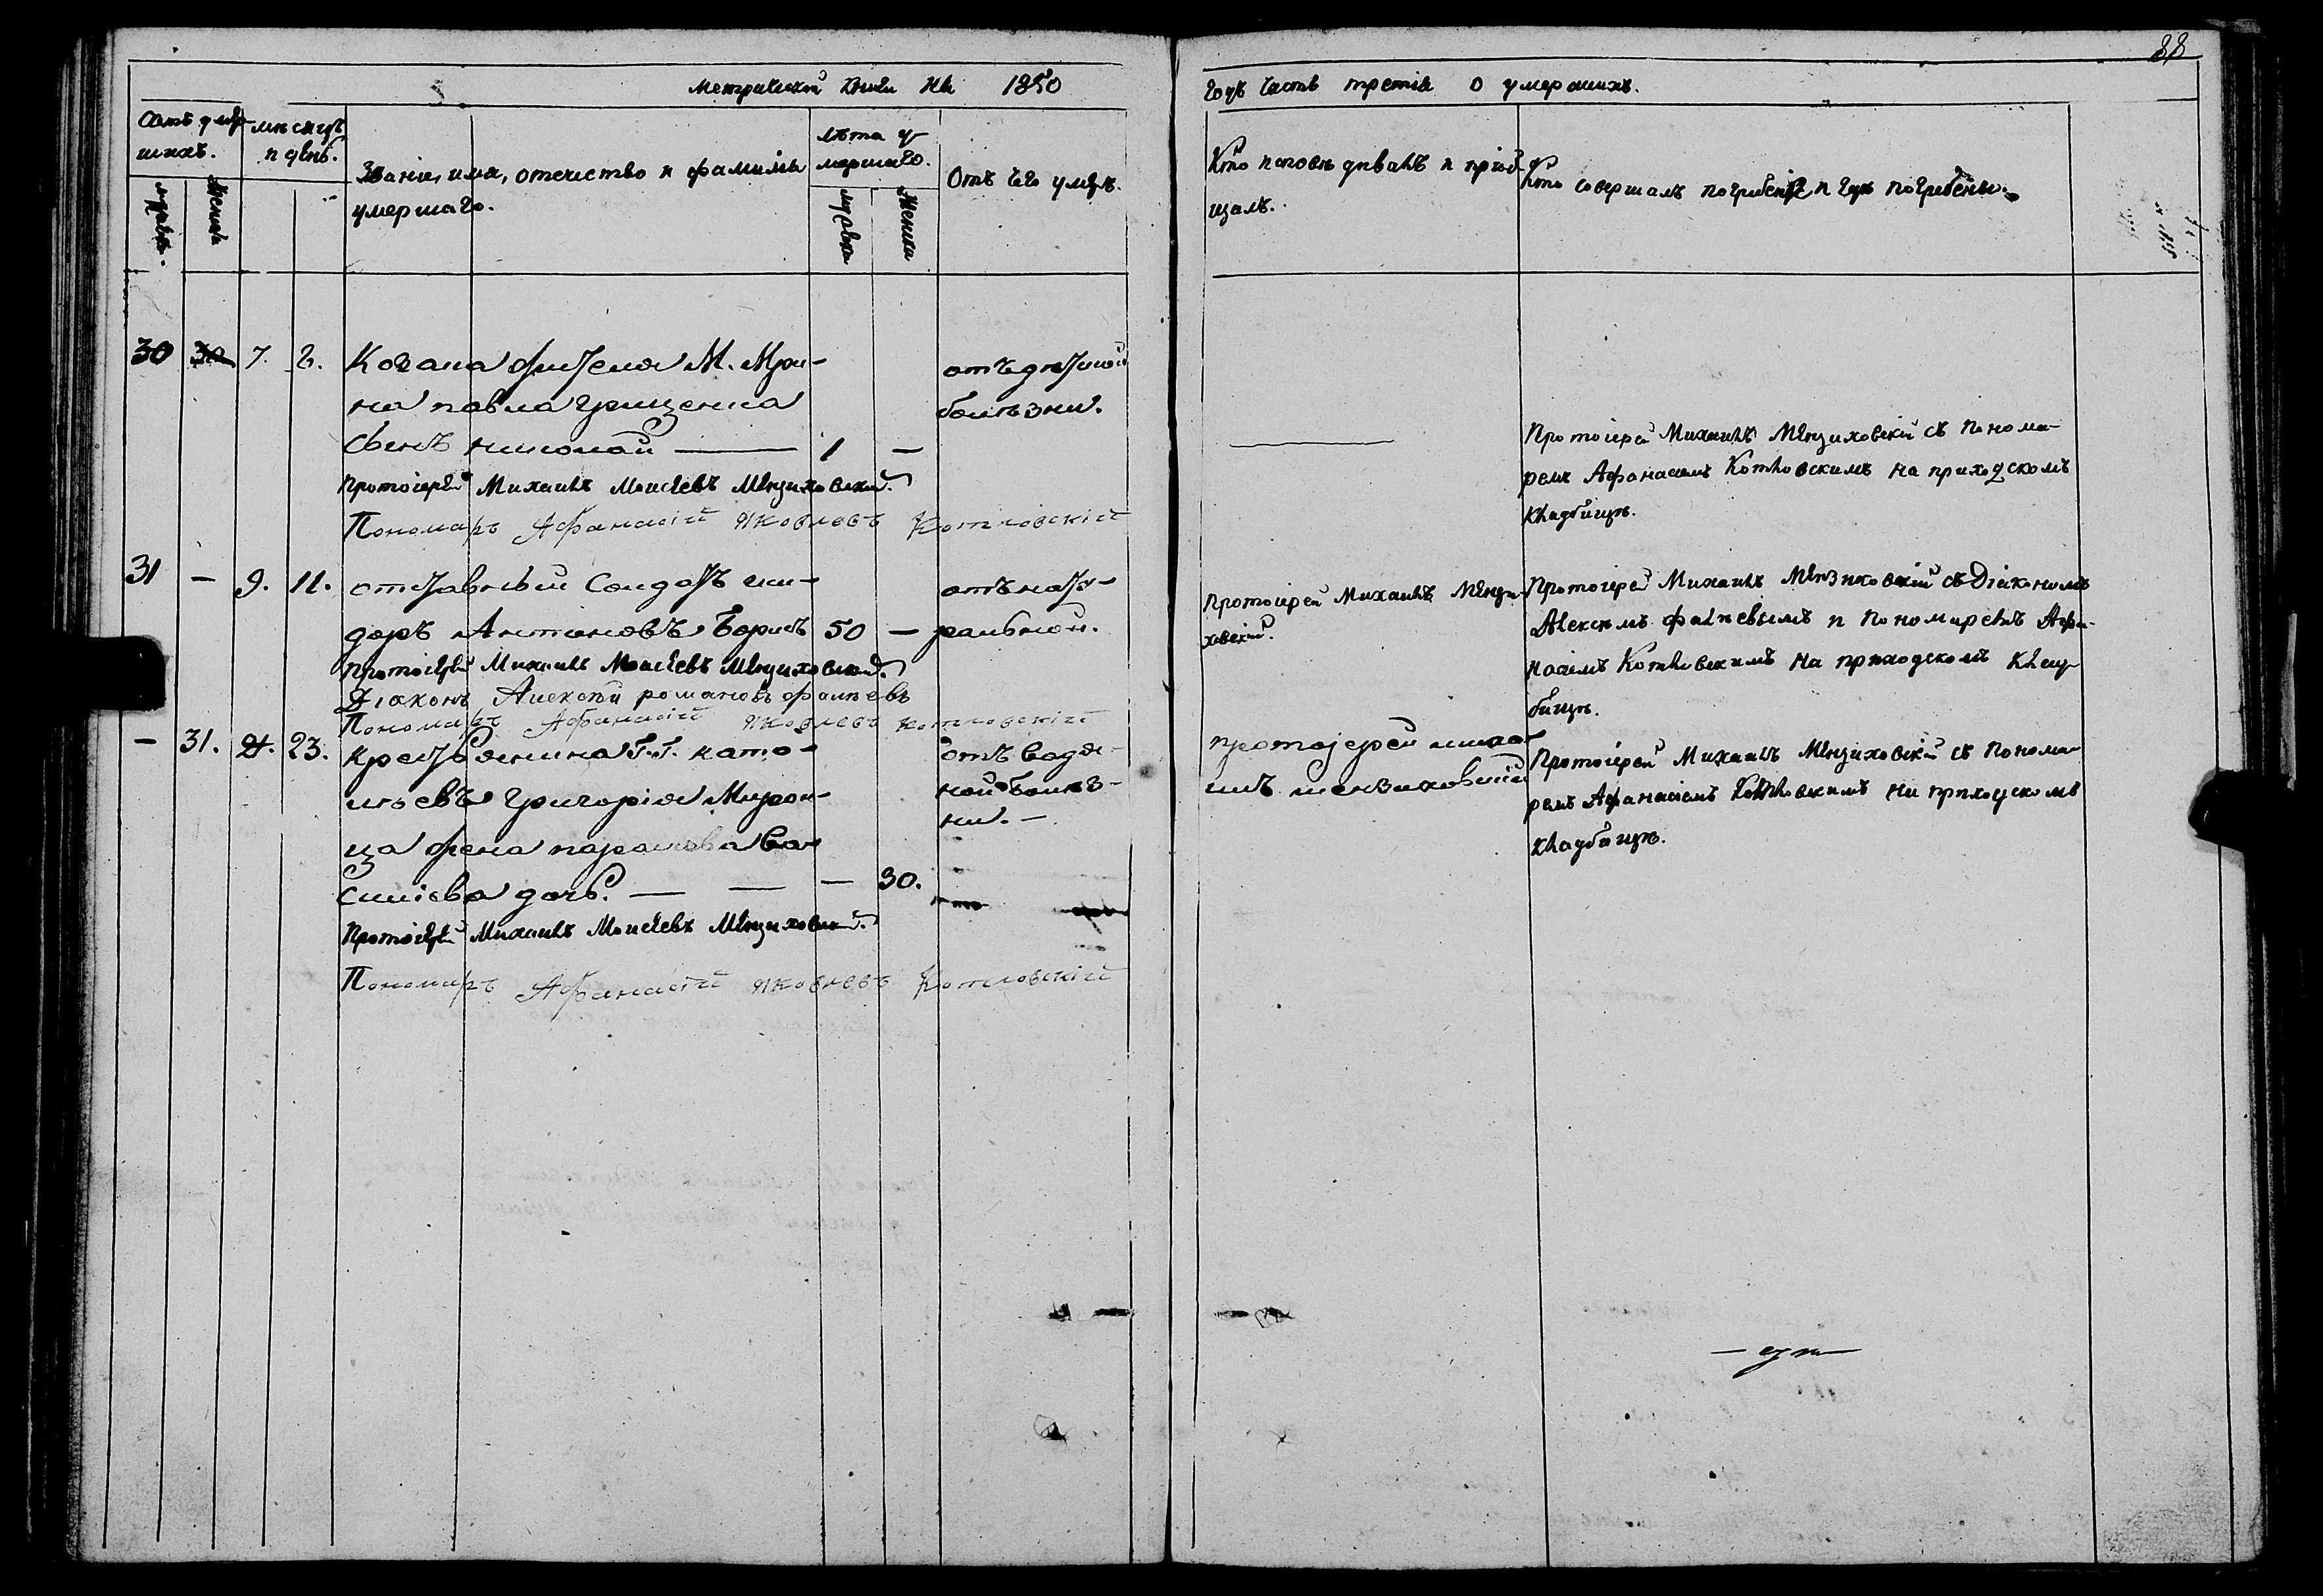 88
Метрической Книги На 1850
годъ Часть третія о умершихъ.
Счетъ умер-
шихъ.
Мѣсяцъ
и день.
Званіе, имя, отечество и фамилія
умершаго.
лѣта у-
мершаго.
Отъ чего умеръ.
Мужеска.
Женска
Мужеска
Женска
Кто исповѣдывалъ и пріоб-
щалъ.
Кто совершалъ погребеніе и гдѣ погребены.
30 30 7. 8.
Козака жителя М. Мри-
на павла Грищенка
сынъ николай — 1 —
отъ дѣтской
болѣзни.
Протоіерей Михаилъ Моисеевъ Мензиховскій.
Пономарь Афанасій Яковлевъ Котловскій
Протоіерей Михаилъ Мензиховскій съ Понома-
ремъ Афанасіемъ Котловскимъ на приходскомъ
кладбищѣ.
31 — 9. 11.
отставный Солдатъ
доръ Антоновъ 50 —
отъ нату-
ральной.
Протоіерей Михаилъ Моисеевъ Мензиховскій.
Діаконъ Алексѣй романовъ фалѣевъ
Пономарь Афанасій Яковлевъ Котловскій
Протоіерей Михаилъ Мензи-
ховскій.
Протоіерей Михаилъ Мензиховскій съ Діакономъ
Алексѣемъ фалѣевымъ и Пономаремъ Афа-
насіемъ Котловскимъ на приходскомъ клад-
бищѣ.
— 31. 21. 23.
крестьянина Г. Г.
Григорія Мирон-
ца жена Ва-
силіева дочь. — — — 30.
отъ водя-
ной болѣз-
ни. —
Протоіерей Михаилъ Моисеевъ Мензиховскій.
Пономарь Афанасій Яковлевъ Котловскій
протоіерей миха-
илъ мензиховскій
Протоіерей Михаилъ Мензиховскій съ Понома-
ремъ Афанасіемъ Котловскимъ на приходскомъ
кладбищѣ.